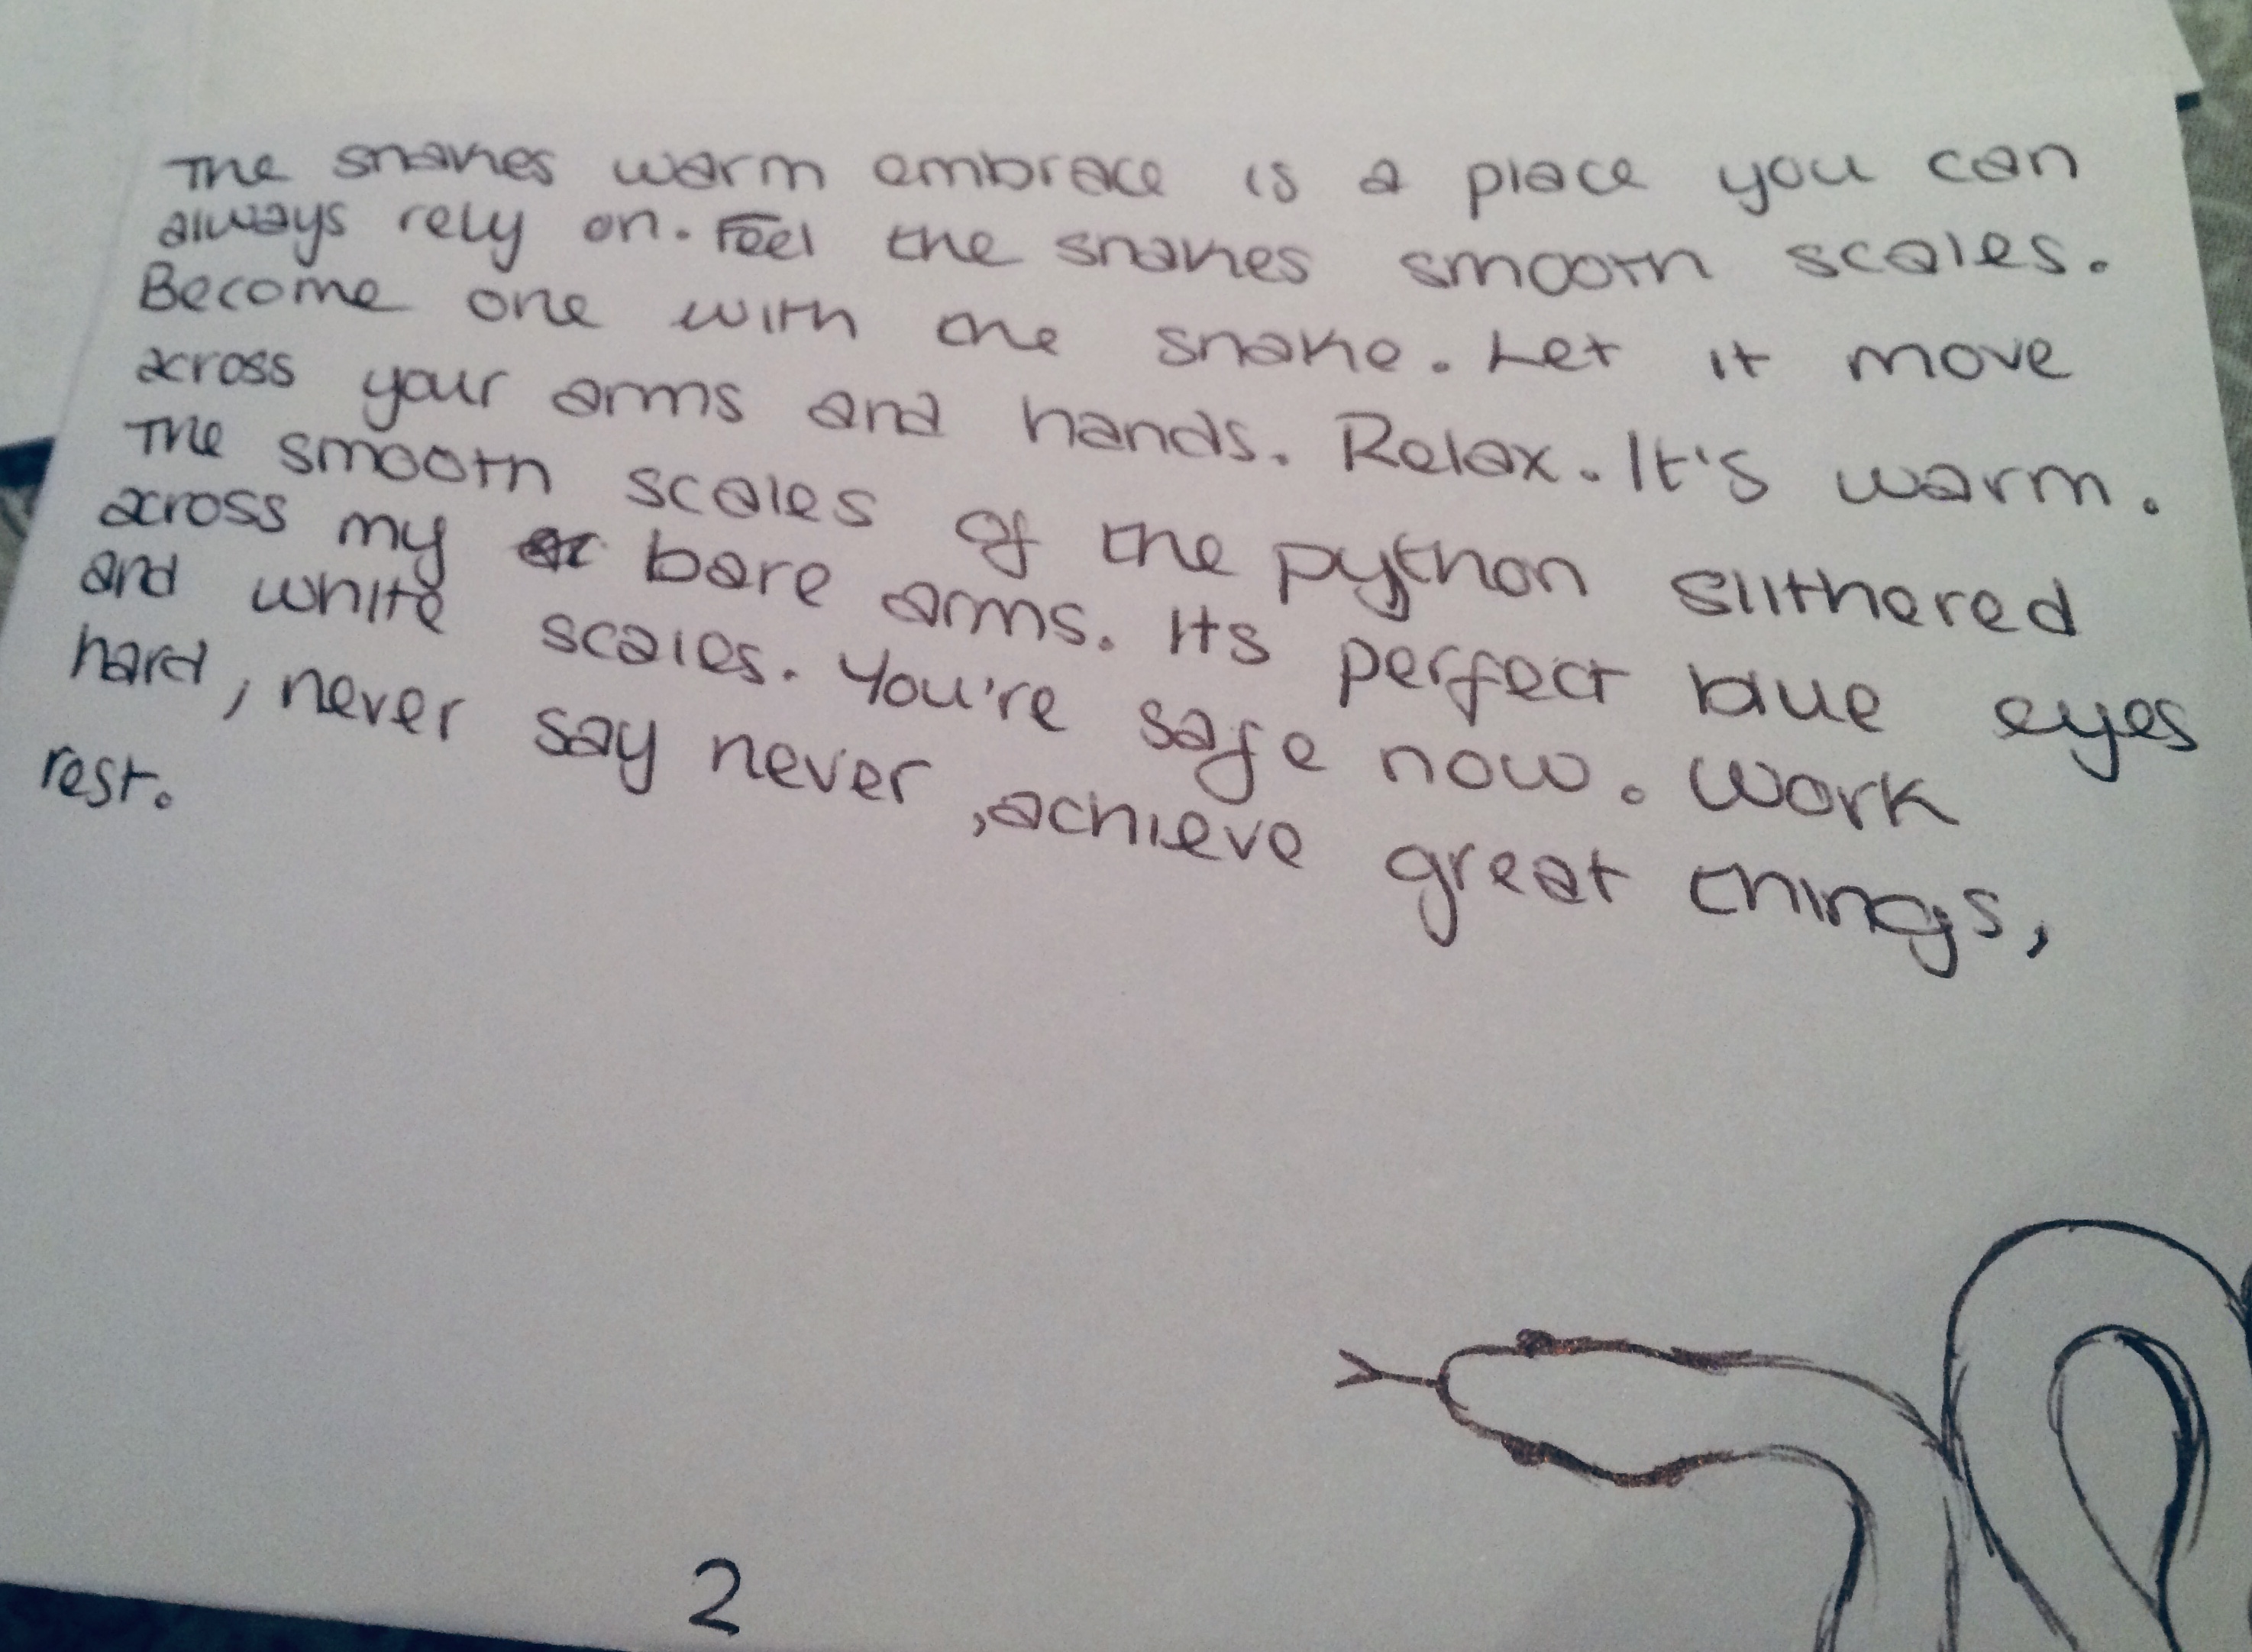 The snakes warm embrace is a place you can
always rely on. Feel the snakes smooth scales.
Become one with the snake. Let it move
across your arms and hands. Relax. It's warm.
The smooth scales of the python slithered
across my bare arms. Its perfect blue eyes
and white scales. You're safe now. Work
hard, never say never, achieve great things,
rest.
2